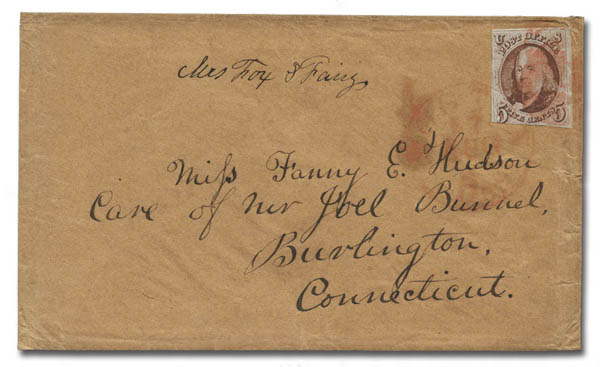 POST OFFICE
5 FIVE CENTS 5
Mrs Fox &
Miss Fanny E. Hudson
Care of Mr Joel Bunnel,
Burlington,
Connecticut.